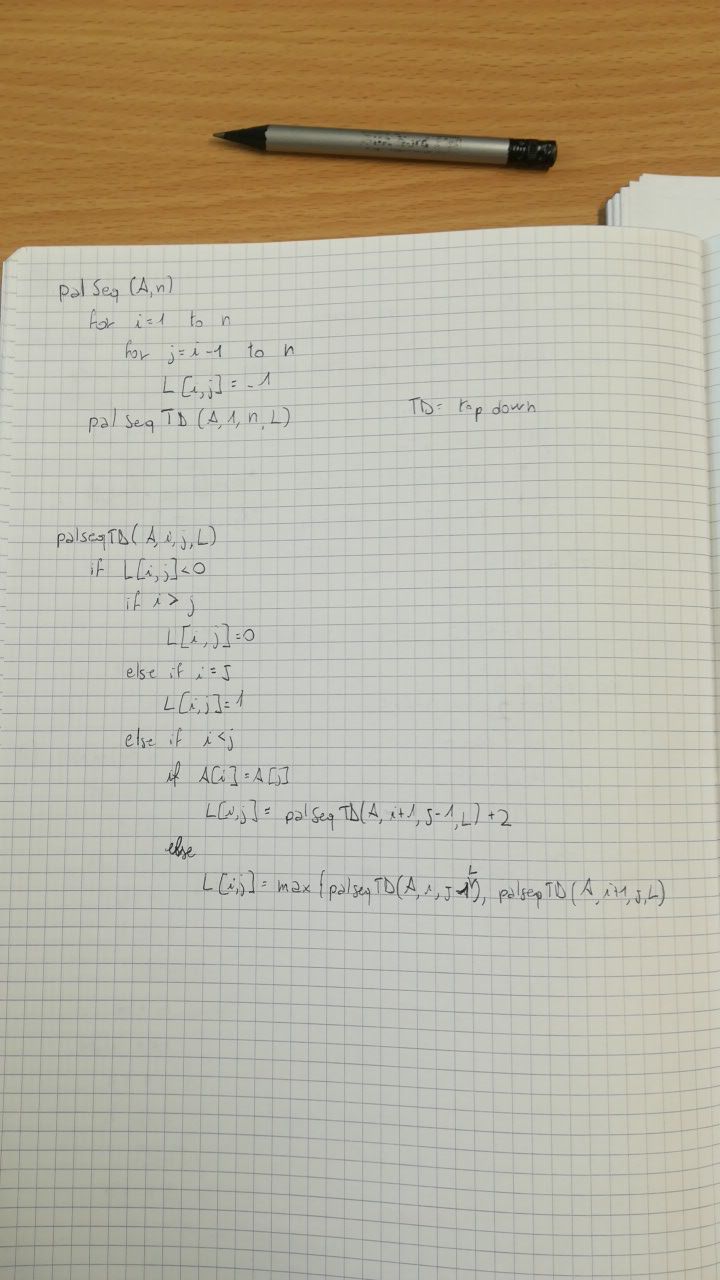 palSeq (A,n)
for i=1 to n
for j=i-1 to n
L[i,j] = -1
palSeqTD (A,1,n,L)
TD= top down
palseqTD( A, i, j, L)
if L[i,j]<0
if i > j
L[i,j]=0
else if i = J
L[i,j]=1
else if i<j
if A[i]=A[j]
L[i,j] = palSeqTD(A, i+1, j-1, L) +2
else
L[i,j] = max {palseqTD(A, i, j-1, L), palseqTD(A, i+1, j, L)